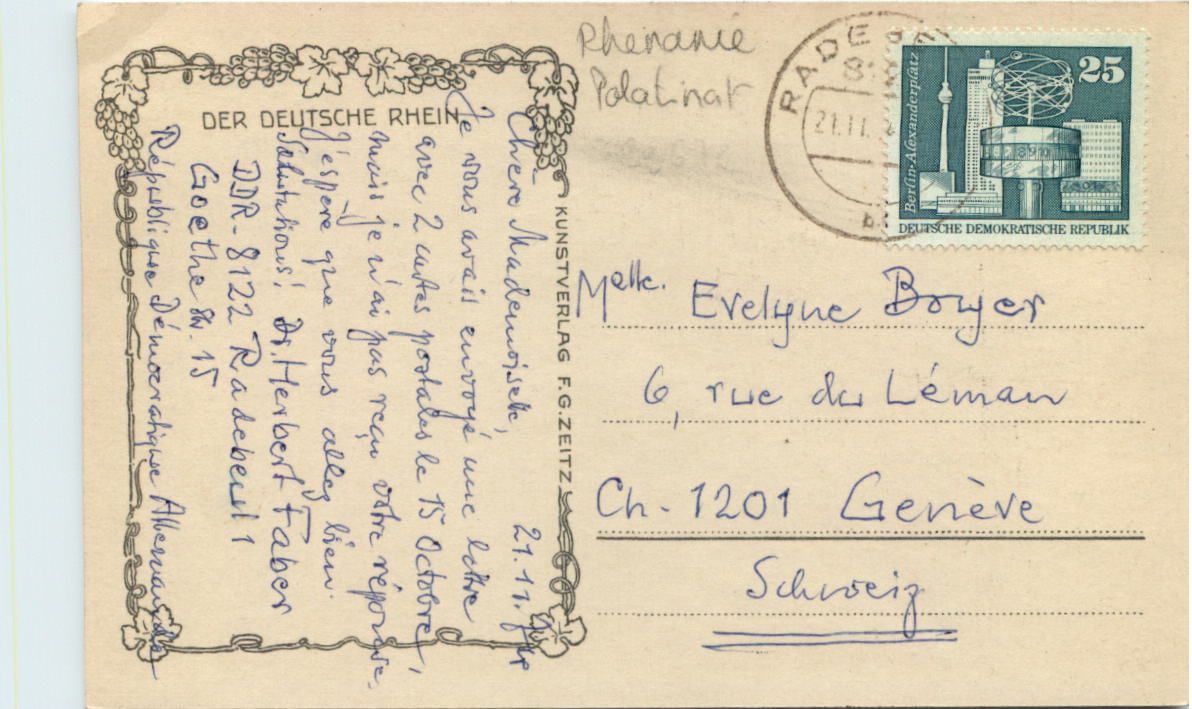 Rhenanie
Palatinat
RADEBEUL
21.11.
25
Berlin-Alexanderplatz
DEUTSCHE DEMOKRATISCHE REPUBLIK
DER DEUTSCHE RHEIN
KUNSTVERLAG F.G.ZEITZ
21.11.
Chère Mademoiselle,
Je vous avais envoyé une lettre
avec 2 cartes postales le 15 Octobre,
mais je n'ai pas reçu votre réponse.
J'espère que vous allez bien.
Salutations! Dr. Herbert Faber
DDR-8122 Radebeul 1
Goethe Str. 15
République Démocratique Allemande
Melle. Evelyne Boyer
6, rue du Léman
Ch-1201 Genève
Schweiz